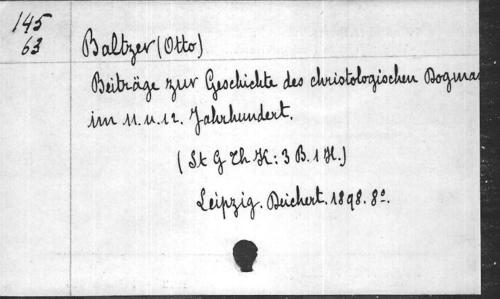 145
63
Baltzer (Otto)
Beiträge zur Geschichte des christologischen Dogmas
im 11. u. 12. Jahrhundert.
(St G Th K: 3 B. 1 H.)
Leipzig. Deichert. 1898. 8°.